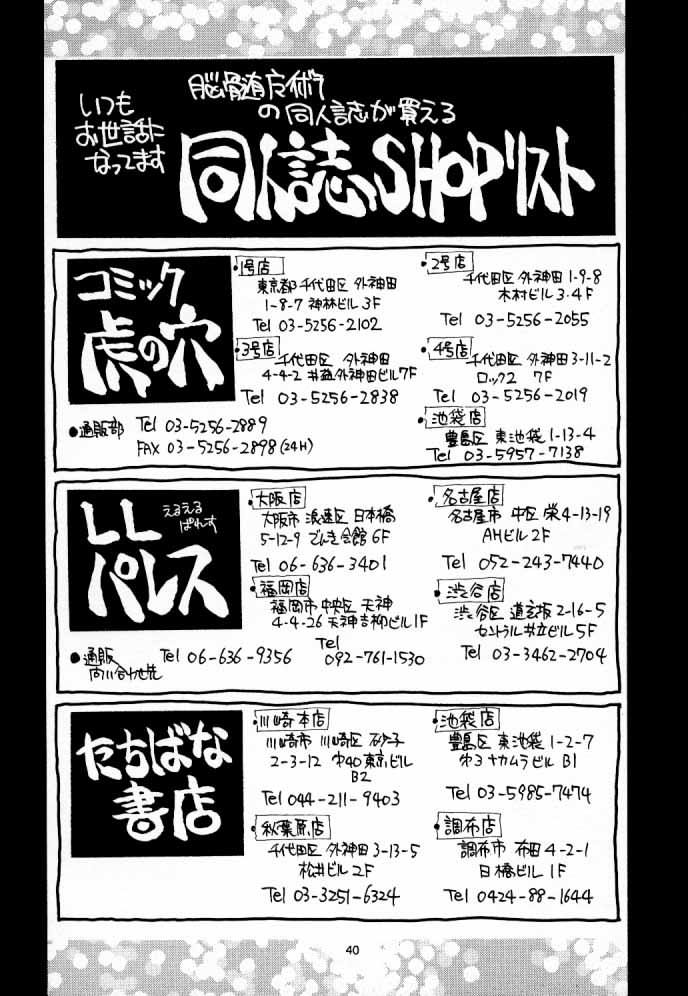 いつも
お世話に
なってます
脳髄魔術
の同人誌が買える
同人誌SHOPリスト
コミック
虎の穴
・1号店
東京都千代田区 外神田
1-8-7 神林ビル 3F
Tel 03-5256-2102
・2号店
千代田区 外神田 1-9-8
木村ビル 3・4F
Tel 03-5256-2055
・3号店
千代田区 外神田
4-4-2 井益外神田ビル7F
Tel 03-5256-2838
・4号店
千代田区 外神田3-11-2
ロック2 7F
Tel 03-5256-2019
●通販部 Tel 03-5256-2889
FAX 03-5256-2898(24H)
・池袋店
豊島区 東池袋 1-13-4
Tel 03-5957-7138
LL
パレス
えるえる
ぱれす
・大阪店
大阪市 浪速区 日本橋
5-12-9 でんき会館 6F
Tel 06-636-3401
・名古屋店
名古屋市 中区 栄4-13-19
AHビル2F
Tel 052-243-7440
・福岡店
福岡市 中央区 天神
4-4-26 天神吉柳ビル1F
Tel
092-761-1530
・渋谷店
渋谷区 道玄坂2-16-5
セントラル共立ビル5F
Tel 03-3462-2704
●通販
問い合わせ先
Tel 06-636-9356
たちばな
書店
・川崎本店
川崎市 川崎区 砂子
2-3-12 第40東京ビル
B2
Tel 044-211-9403
・池袋店
豊島区 東池袋 1-2-7
第3ナカムラビル B1
Tel 03-5985-7474
・秋葉原店
千代田区 外神田 3-13-5
松井ビル 2F
Tel 03-3251-6324
・調布店
調布市 布田 4-2-1
日橋ビル 1F
Tel 0424-88-1644
40